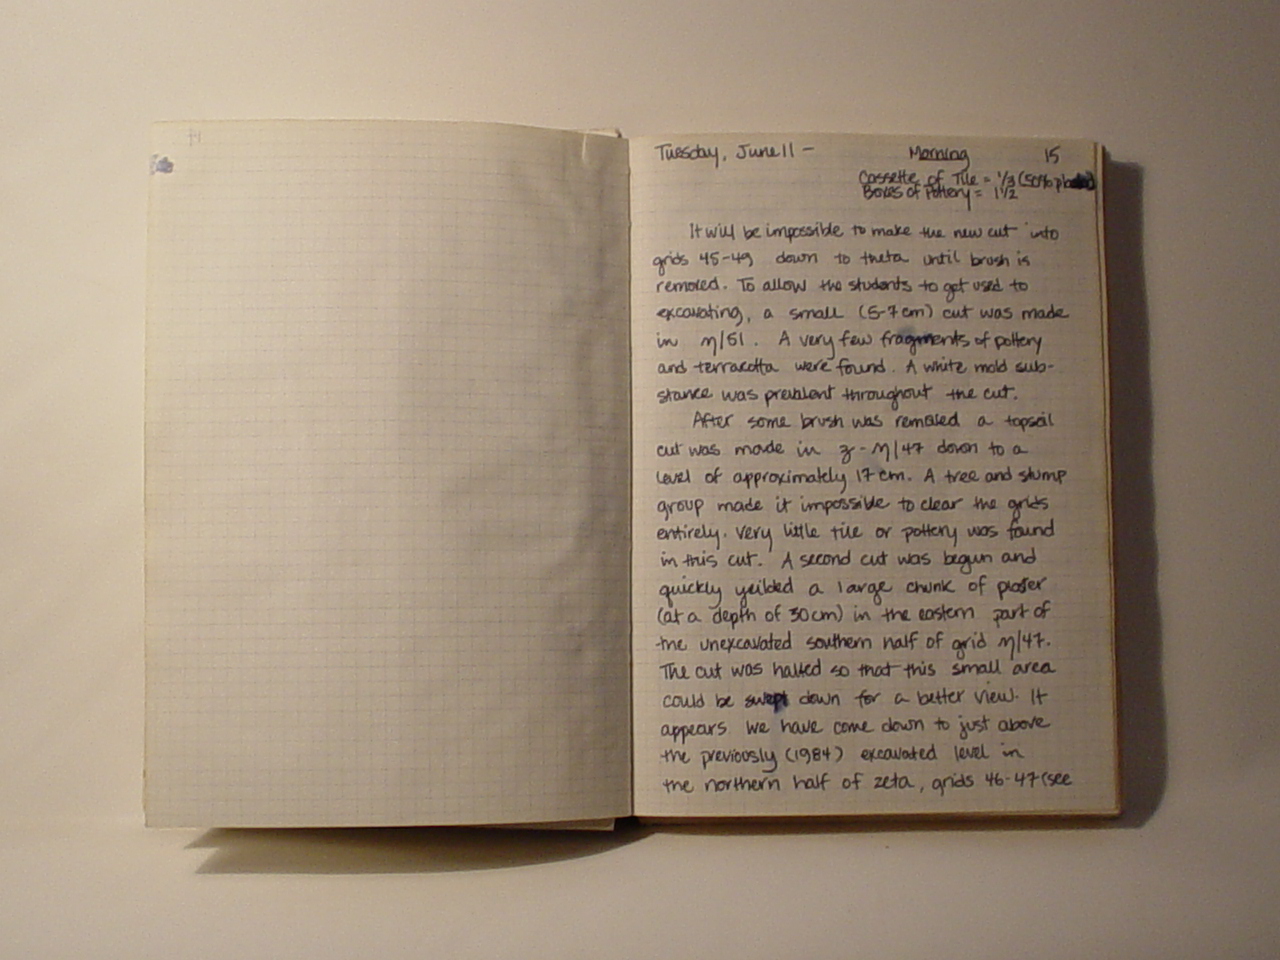 14
Tuesday, June 11 — Morning 15
Cassette of Tile = 1/3 (50%
Boxes of Pottery = 1 1/2
It will be impossible to make the new cut into
grids 45-49 down to theta until brush is
removed. To allow the students to get used to
excavating, a small (5-7cm) cut was made
in η/51. A very few fragments of pottery
and terracotta were found. A white mold sub-
stance was prevalent throughout the cut.
After some brush was removed a topsoil
cut was made in z-η/47 down to a
level of approximately 17cm. A tree and stump
group made it impossible to clear the grids
entirely. Very little tile or pottery was found
in this cut. A second cut was begun and
quickly yeilded a large chunk of plaster
(at a depth of 30cm) in the eastern part of
the unexcavated southern half of grid η/47.
The cut was halted so that this small area
could be swept down for a better view. It
appears we have come down to just above
the previously (1984) excavated level in
the northern half of zeta, grids 46-47 (see